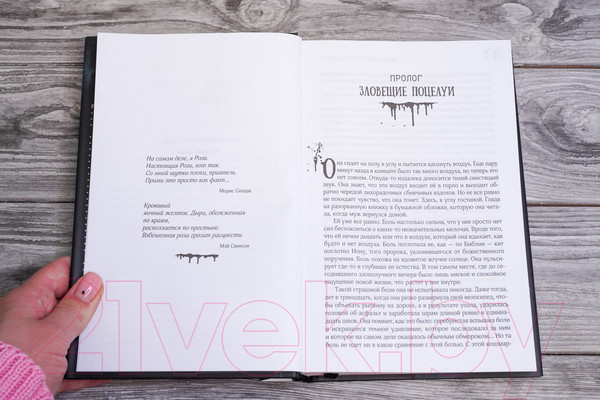 На самом деле, я Рози.
Настоящая Рози, вот так.
Со мной шутки плохи, приятель.
Прими это просто как факт...
Морис Сендак
Кровавый
яичный желток. Дыра, обожженная
по краям,
расползается по простыне.
Взбешенная роза грозит расцвести.
Мэй Свенсон
ПРОЛОГ
ЗЛОВЕЩИЕ ПОЦЕЛУИ
Она сидит на полу в углу и пытается вдохнуть воздух. Еще пару
минут назад в комнате было так много воздуха, но теперь его
нет совсем. Откуда-то издалека доносится тихий свистящий
звук. Она знает, что это воздух входит ей в горло и выходит обратно чередой лихорадочных сбивчивых вздохов. Но ее все равно
не покидает чувство, что она тонет. Здесь, в углу гостиной. Глядя
на разорванную книжку в бумажной обложке, которую она читала, когда муж вернулся домой.
Ей уже все равно. Боль настолько сильна, что у нее просто нет
сил беспокоиться о каких-то незначительных мелочах. Вроде того,
что ей нечем дышать или что в воздухе, который она вдыхает, как
будто и нет воздуха. Боль поглотила ее, как — по Библии — кит
поглотил Иону, того пророка, уклонившегося от божественного
поручения. Боль похожа на ядовитое жгучее солнце. Она пульсирует где-то в глубинах ее естества. В том самом месте, где до сегодняшнего злополучного вечера было лишь мягкое и спокойное
ощущение новой жизни, что растет у нее внутри.
Такой страшной боли она не испытывала никогда. Даже тогда,
лет в тринадцать, когда она резко вывернула свой велосипед, чтобы объехать рытвину на дороге, а в результате упала, ударилась
головой об асфальт и заработала шрам длиной ровно в одиннадцать швов. Она помнит, как это было: серебристая вспышка боли
и искрящееся темное удивление, которое последовало за ним
и которое на самом деле оказалось обычным обмороком... Но та
боль не идет ни в какое сравнение с этой болью. С этой кошмар-
21vek.by